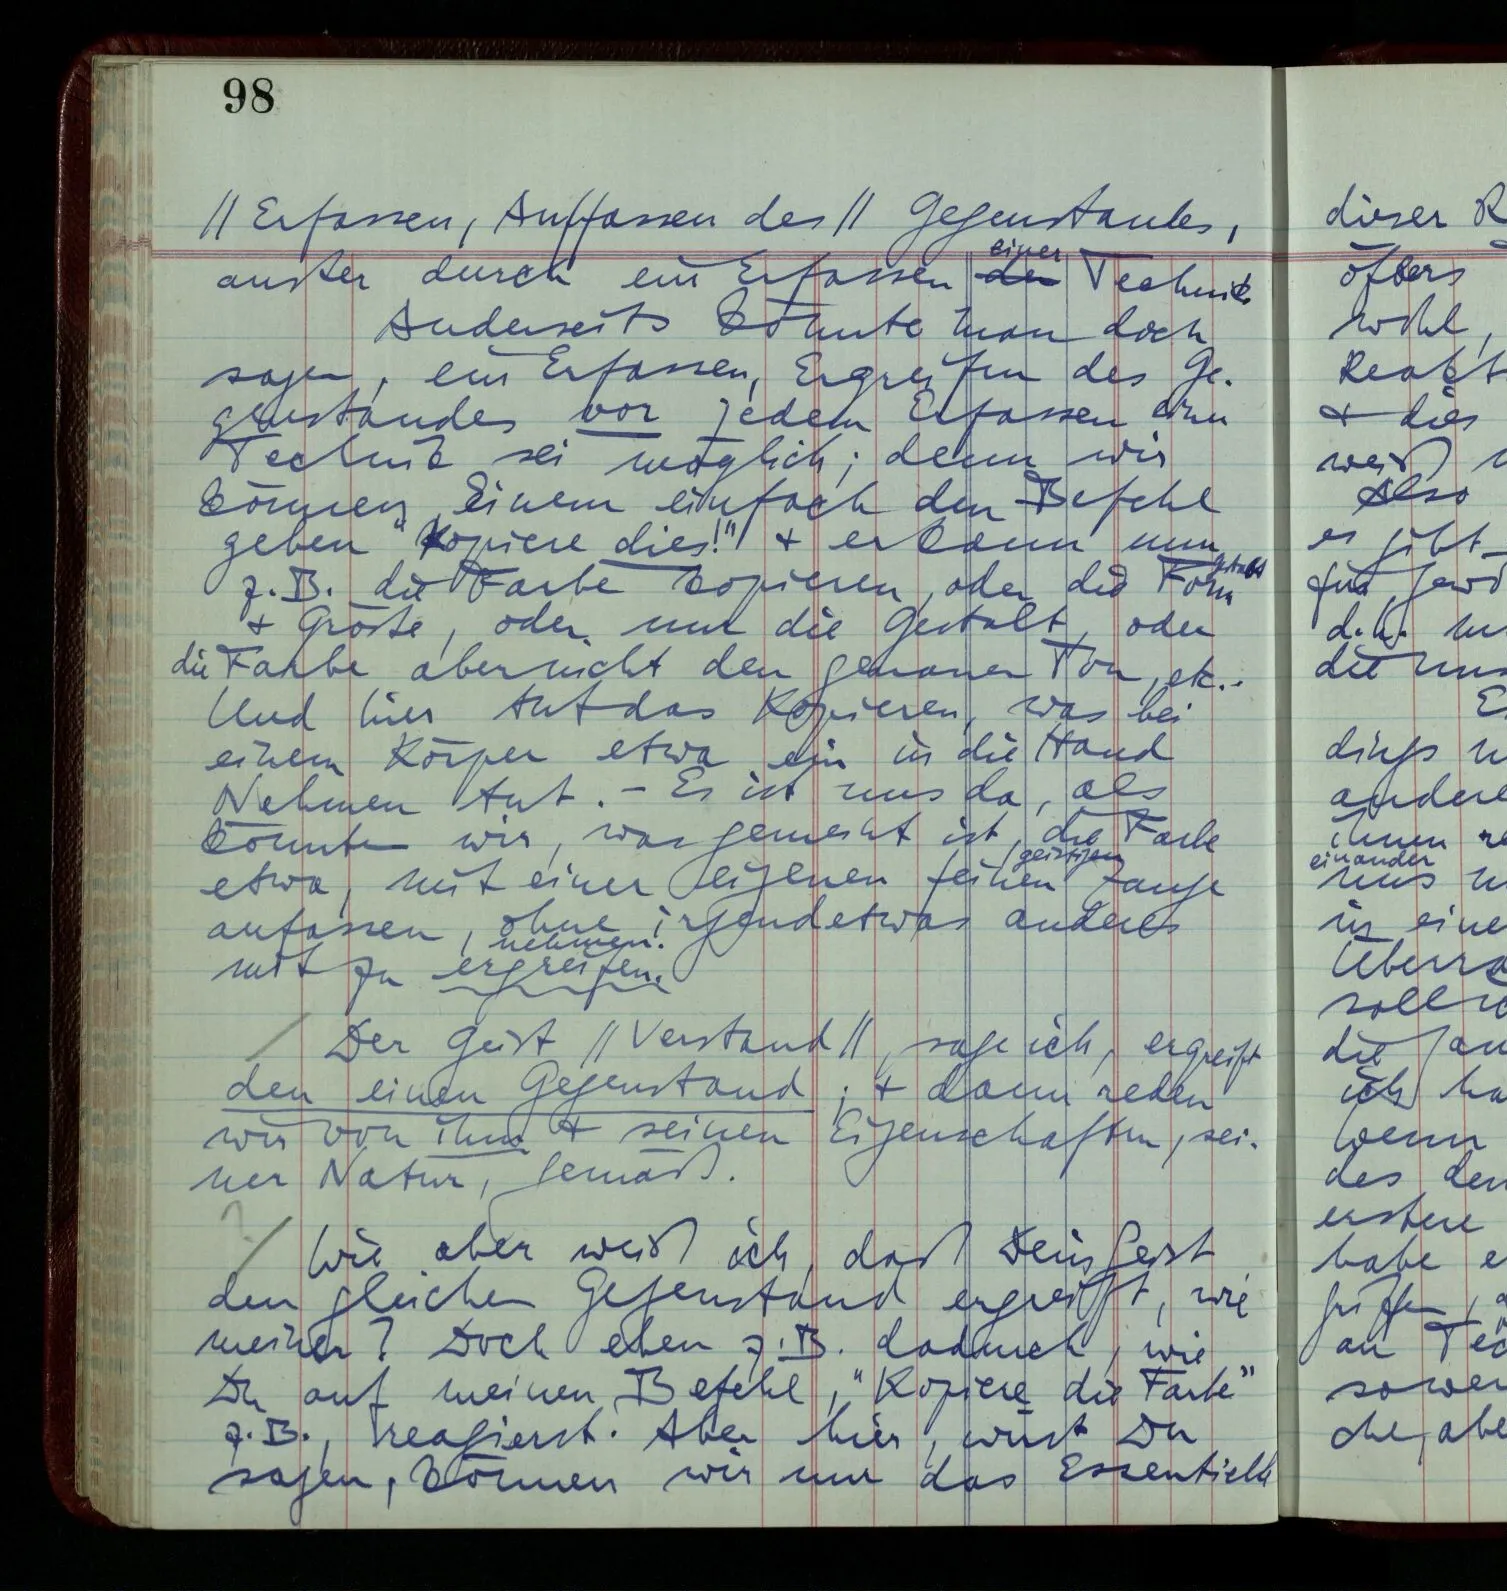 98
// Erfassen, Auffassen des // Gegenstandes,
außer durch ein Erfassen der einer Technik
Anderseits könnte man doch
sagen, ein Erfassen, Ergreifen des Ge-
genstandes vor jedem Erfassen einer
Technik sei möglich; denn wir
können Einem einfach den Befehl
geben "Kopiere dies!" + er kann nun
z.B. die Farbe kopieren, oder die Form Gestalt
+ Größe, oder nur die Gestalt, oder
die Farbe aber nicht den genauen Ton, etc..
Und hier tut das Kopieren, was bei
einem Körper etwa ein in die Hand
Nehmen tut. – Es ist uns da, als
könnten wir, was gemeint ist, die Farbe
etwa, mit einer eigenen feinen geistigen Zange
anfassen, ohne irgendetwas anderes
mit zu ergreifen. nehmen.
/ Der Geist // Verstand //, sage ich, ergreift
den einen Gegenstand; + dann reden
wir von ihm + seinen Eigenschaften, sei-
ner Natur, gemäß.
? / Wie aber weiß ich, daß Dein Geist
den gleichen Gegenstand ergreift, wie
meiner? Doch eben z.B. dadurch, wie
Du auf meinen Befehl, "Kopiere die Farbe"
z.B., reagierst. Aber hier, wirst Du
sagen, können wir nur das Essentielle
dieser
öfters
wohl,
+ dies
weiß
Also
es gibt
d.h.
die uns
dings
andere
ihnen
einander
uns
in eine
die
ich ha
wenn
des den
erstere
habe e
an Tec
che, abe